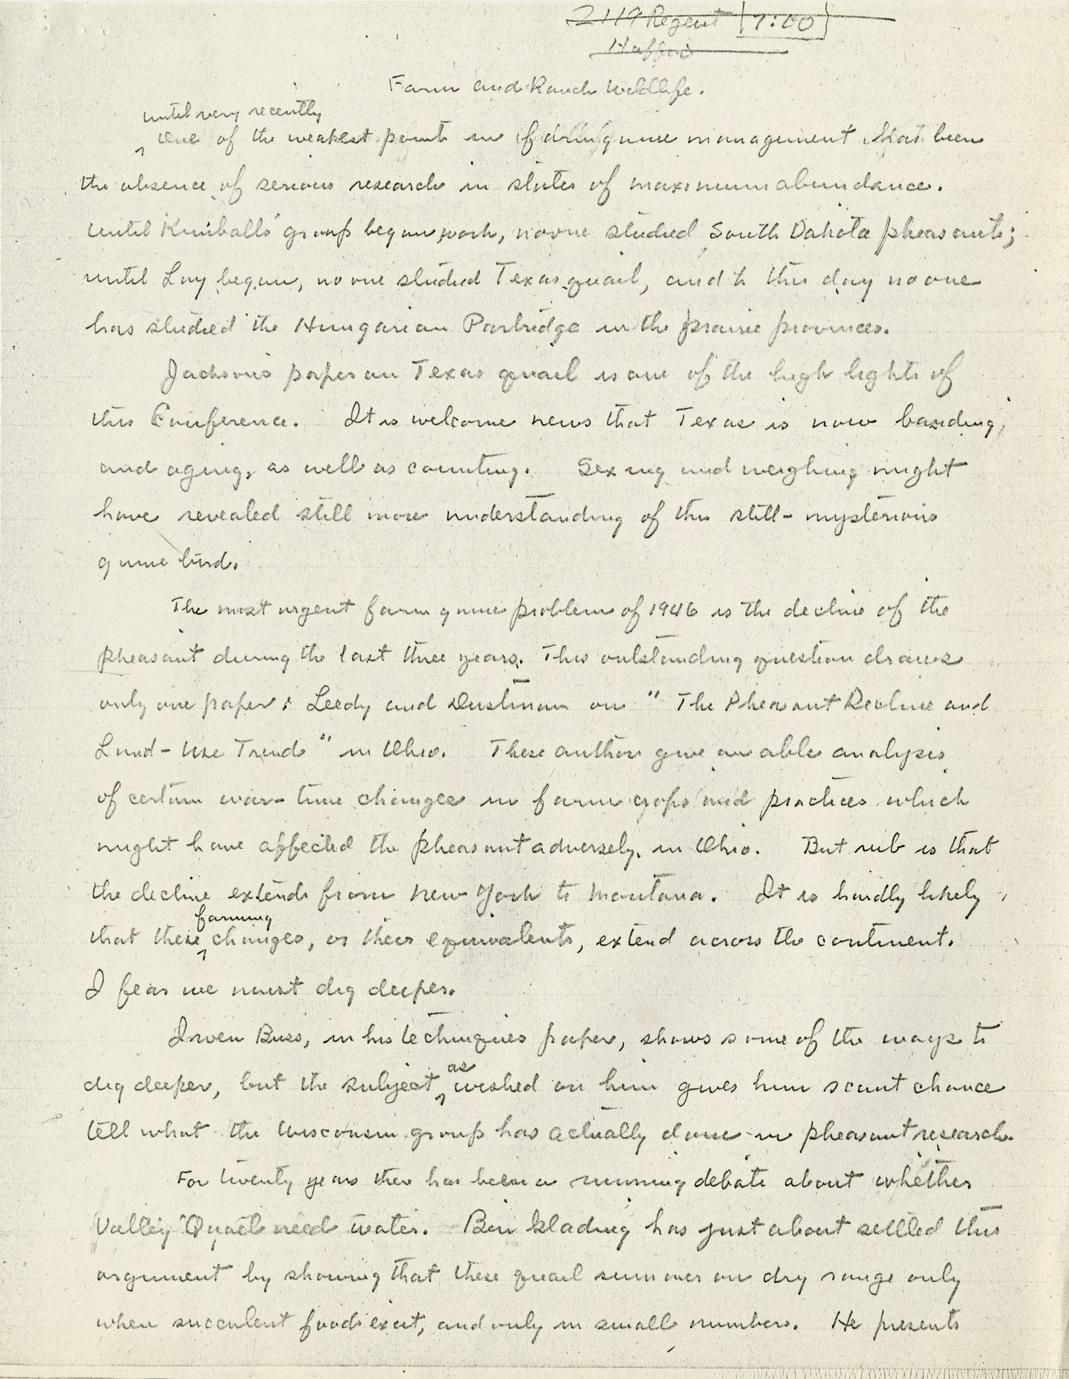 2119 Regent [7:00]
Farm and Ranch Wildlife.
until very recently
One of the weakest points in game management has been
the absence of serious research in states of maximum abundance.
Until Kimball's group began work, no one studied South Dakota pheasants;
until Lay began, no one studied Texas quail, and to this day no one
has studied the Hungarian Partridge in the prairie provinces.
Jackson's paper on Texas quail is one of the high lights of
this Conference. It is welcome news that Texas is now banding,
and aging, as well as counting. Sexing and weighing might
have revealed still more understanding of this still-mysterious
game bird.
The most urgent farm game problem of 1946 is the decline of the
pheasant during the last three years. This outstanding question draws
only one paper: Leedy and Dustman on "The Pheasant Decline and
Land-Use Trends" in Ohio. These authors give an able analysis
of certain war-time changes in farm crops and practices which
might have affected the pheasant adversely, in Ohio. But rub is that
the decline extends from New York to Montana. It is hardly likely
farming
that these changes, or their equivalents, extend across the continent.
I fear we must dig deeper.
Irven Buss, in his techniques paper, shows some of the ways to
as
dig deeper, but the subject wished on him gives him scant chance
tell what the Wisconsin group has actually done in pheasant research.
For twenty years there has been a running debate about whether
Valley Quail need water. Ben Glading has just about settled this
argument by showing that these quail summer on dry range only
when succulent foods exist, and only in small numbers. He presents